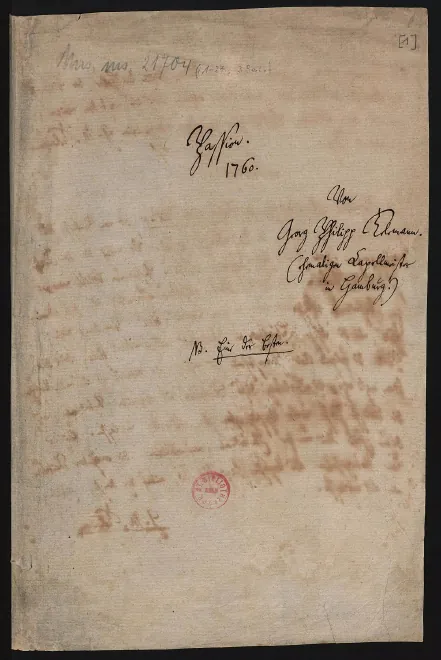 [1]
Mus. ms. 21704
Passion.
1760.
Von
Georg Philipp Telemann.
(ehemaligen Kapellmeister
in Hamburg.)
NB. Eine der besten.